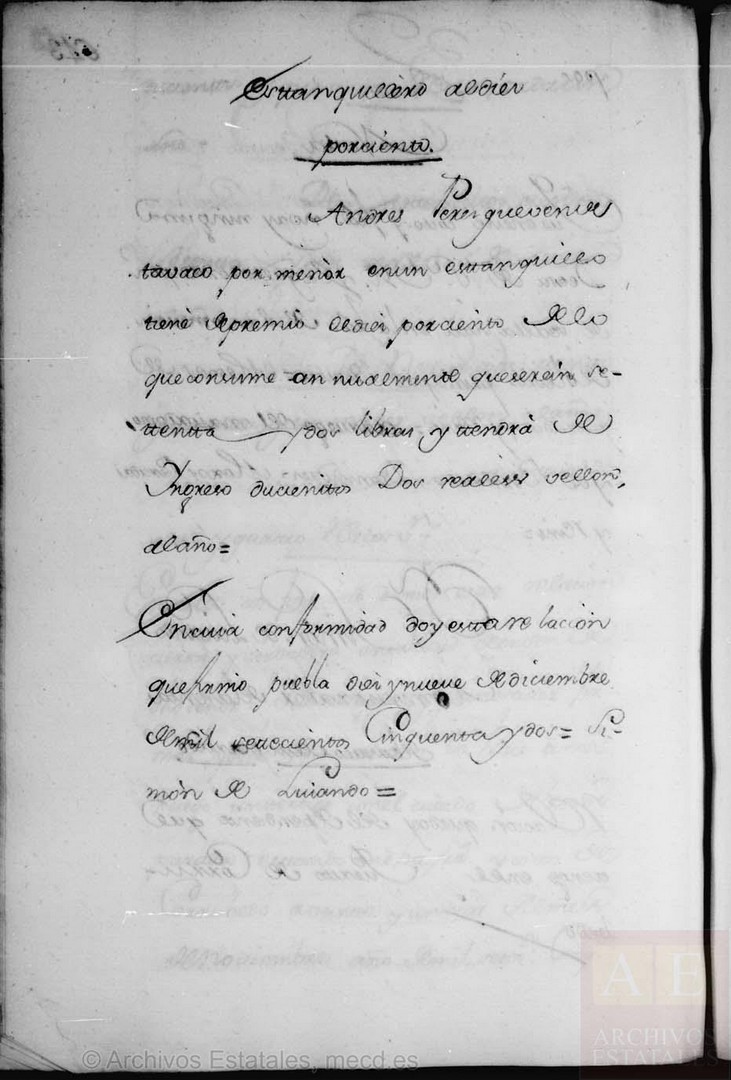 Estanquillero al diez
por ciento.
Andres Perez que vende
tavaco por menòr en un estanquillo
tiene de premio el diez por ciento de lo
que consume annualmente que seràn se-
tenta y dos libras, y tendrà de
Yngreso ducientos Dos reales vellon,
al año =
En cuia conformidad doy esta relaciòn
que firmo puebla diez y nueve de diciembre
de mil setecientos Cinquenta y dos = Si-
mòn de Luiando =
© Archivos Estatales, mecd.es
AE
ARCHIVOS
ESTATALES